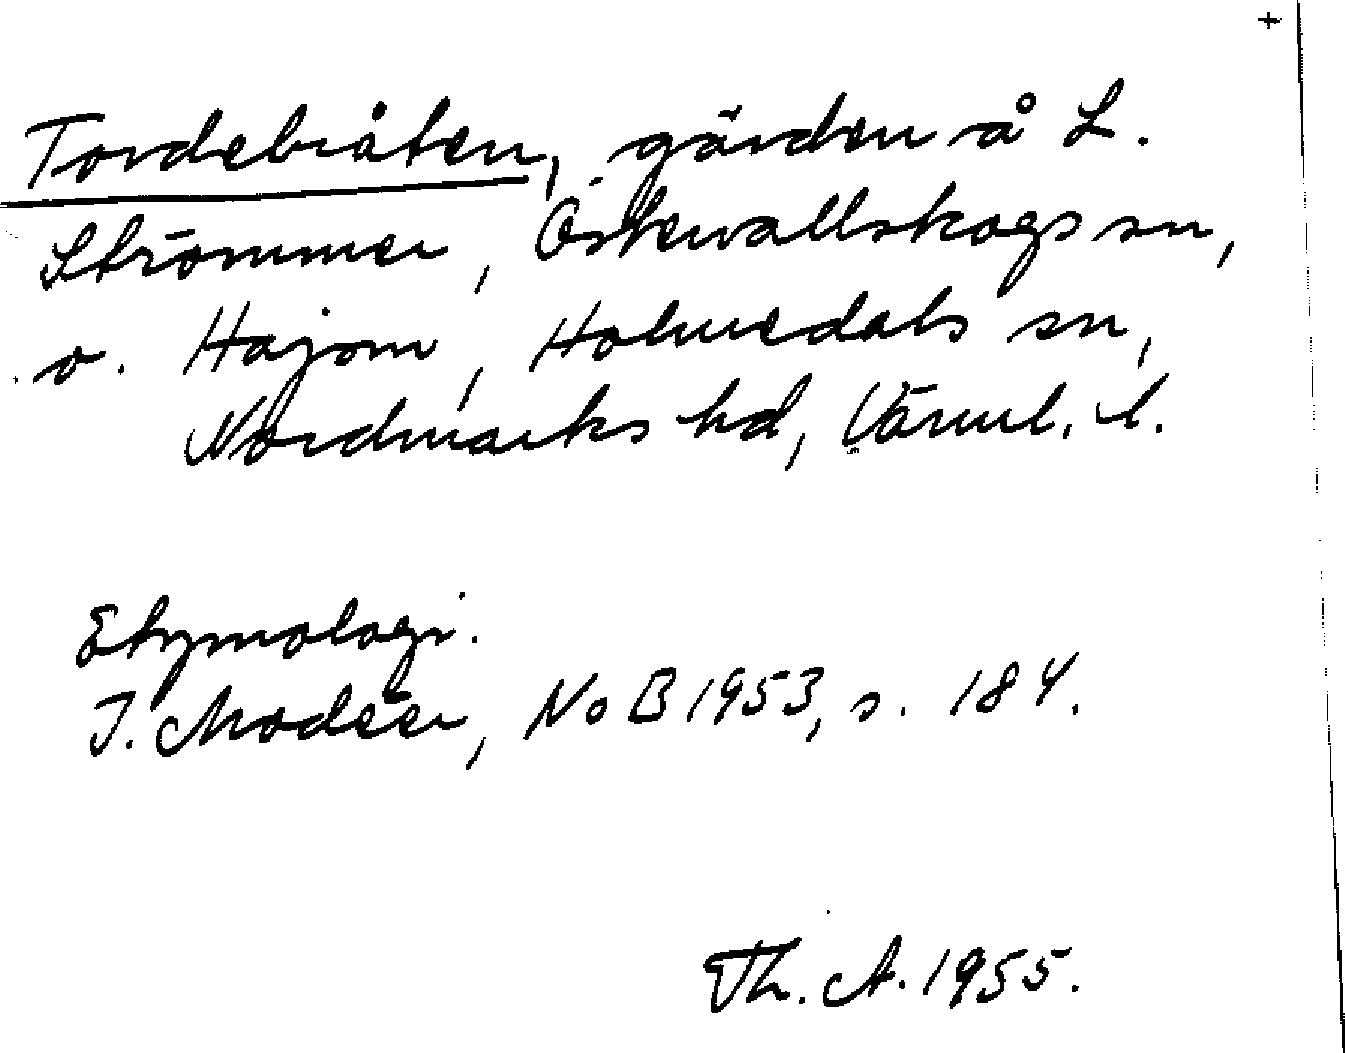 +
Tordebråten, gärden å L.
Strömmer, Östervallskogs sn,
o. Hajom, Holmedals sn,
Nordmarks hd, Värml. l.
Etymologi.
I. Modéer, NoB 1953, s. 184.
Th. A. 1955.